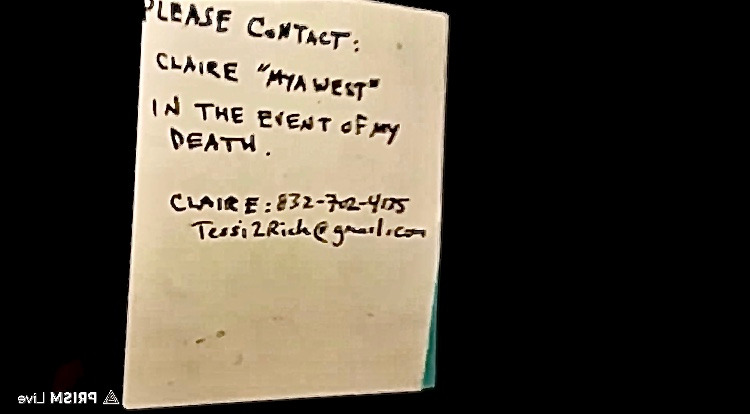 PLEASE CONTACT:
CLAIRE "MYA WEST"
IN THE EVENT OF MY
DEATH.
CLAIRE: 832-702-4175
Tessi2Rich@gmail.com
PRISM Live